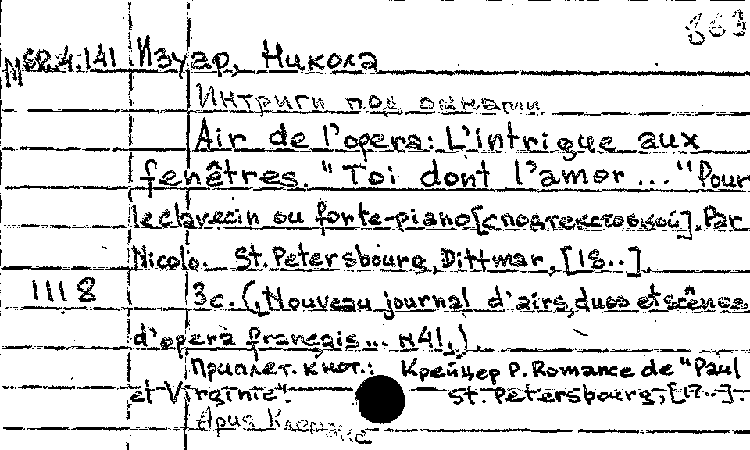 863
М62.4.141 Изуар, Никола
Интриги под окнами
Air de l'opera: L'intrigue aux
fenêtres. "Toi dont l'amor..." Pour
le clavecin ou forte-piano [с подтекстовкой]. Par
Nicolo. St. Petersbourg, Dittmar, [18..].
1118 3с. (Nouveau journal d'airs, duos et scènes
d'opera français... N41.)
Приплет. к нот.: Крейцер Р. Romance de "Paul
et Virginie". St. Petersbourg, [17..].
Ария